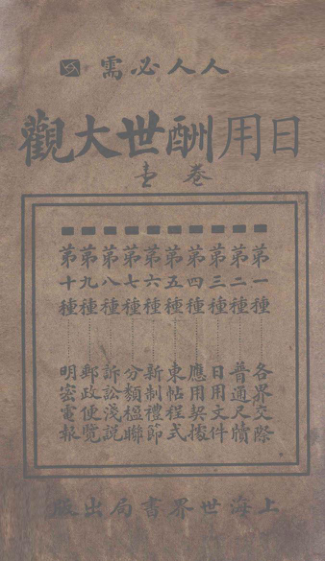 人人必需
日用酬世大觀
卷
第一種 各界交際
第二種 普通尺牘
第三種 日用文件
第四種 應用契據
第五種 柬帖程式
第六種 新制禮節
第七種 分類楹聯
第八種 訴訟淺說
第九種 郵政便覽
第十種 明密電報
上海世界書局出版